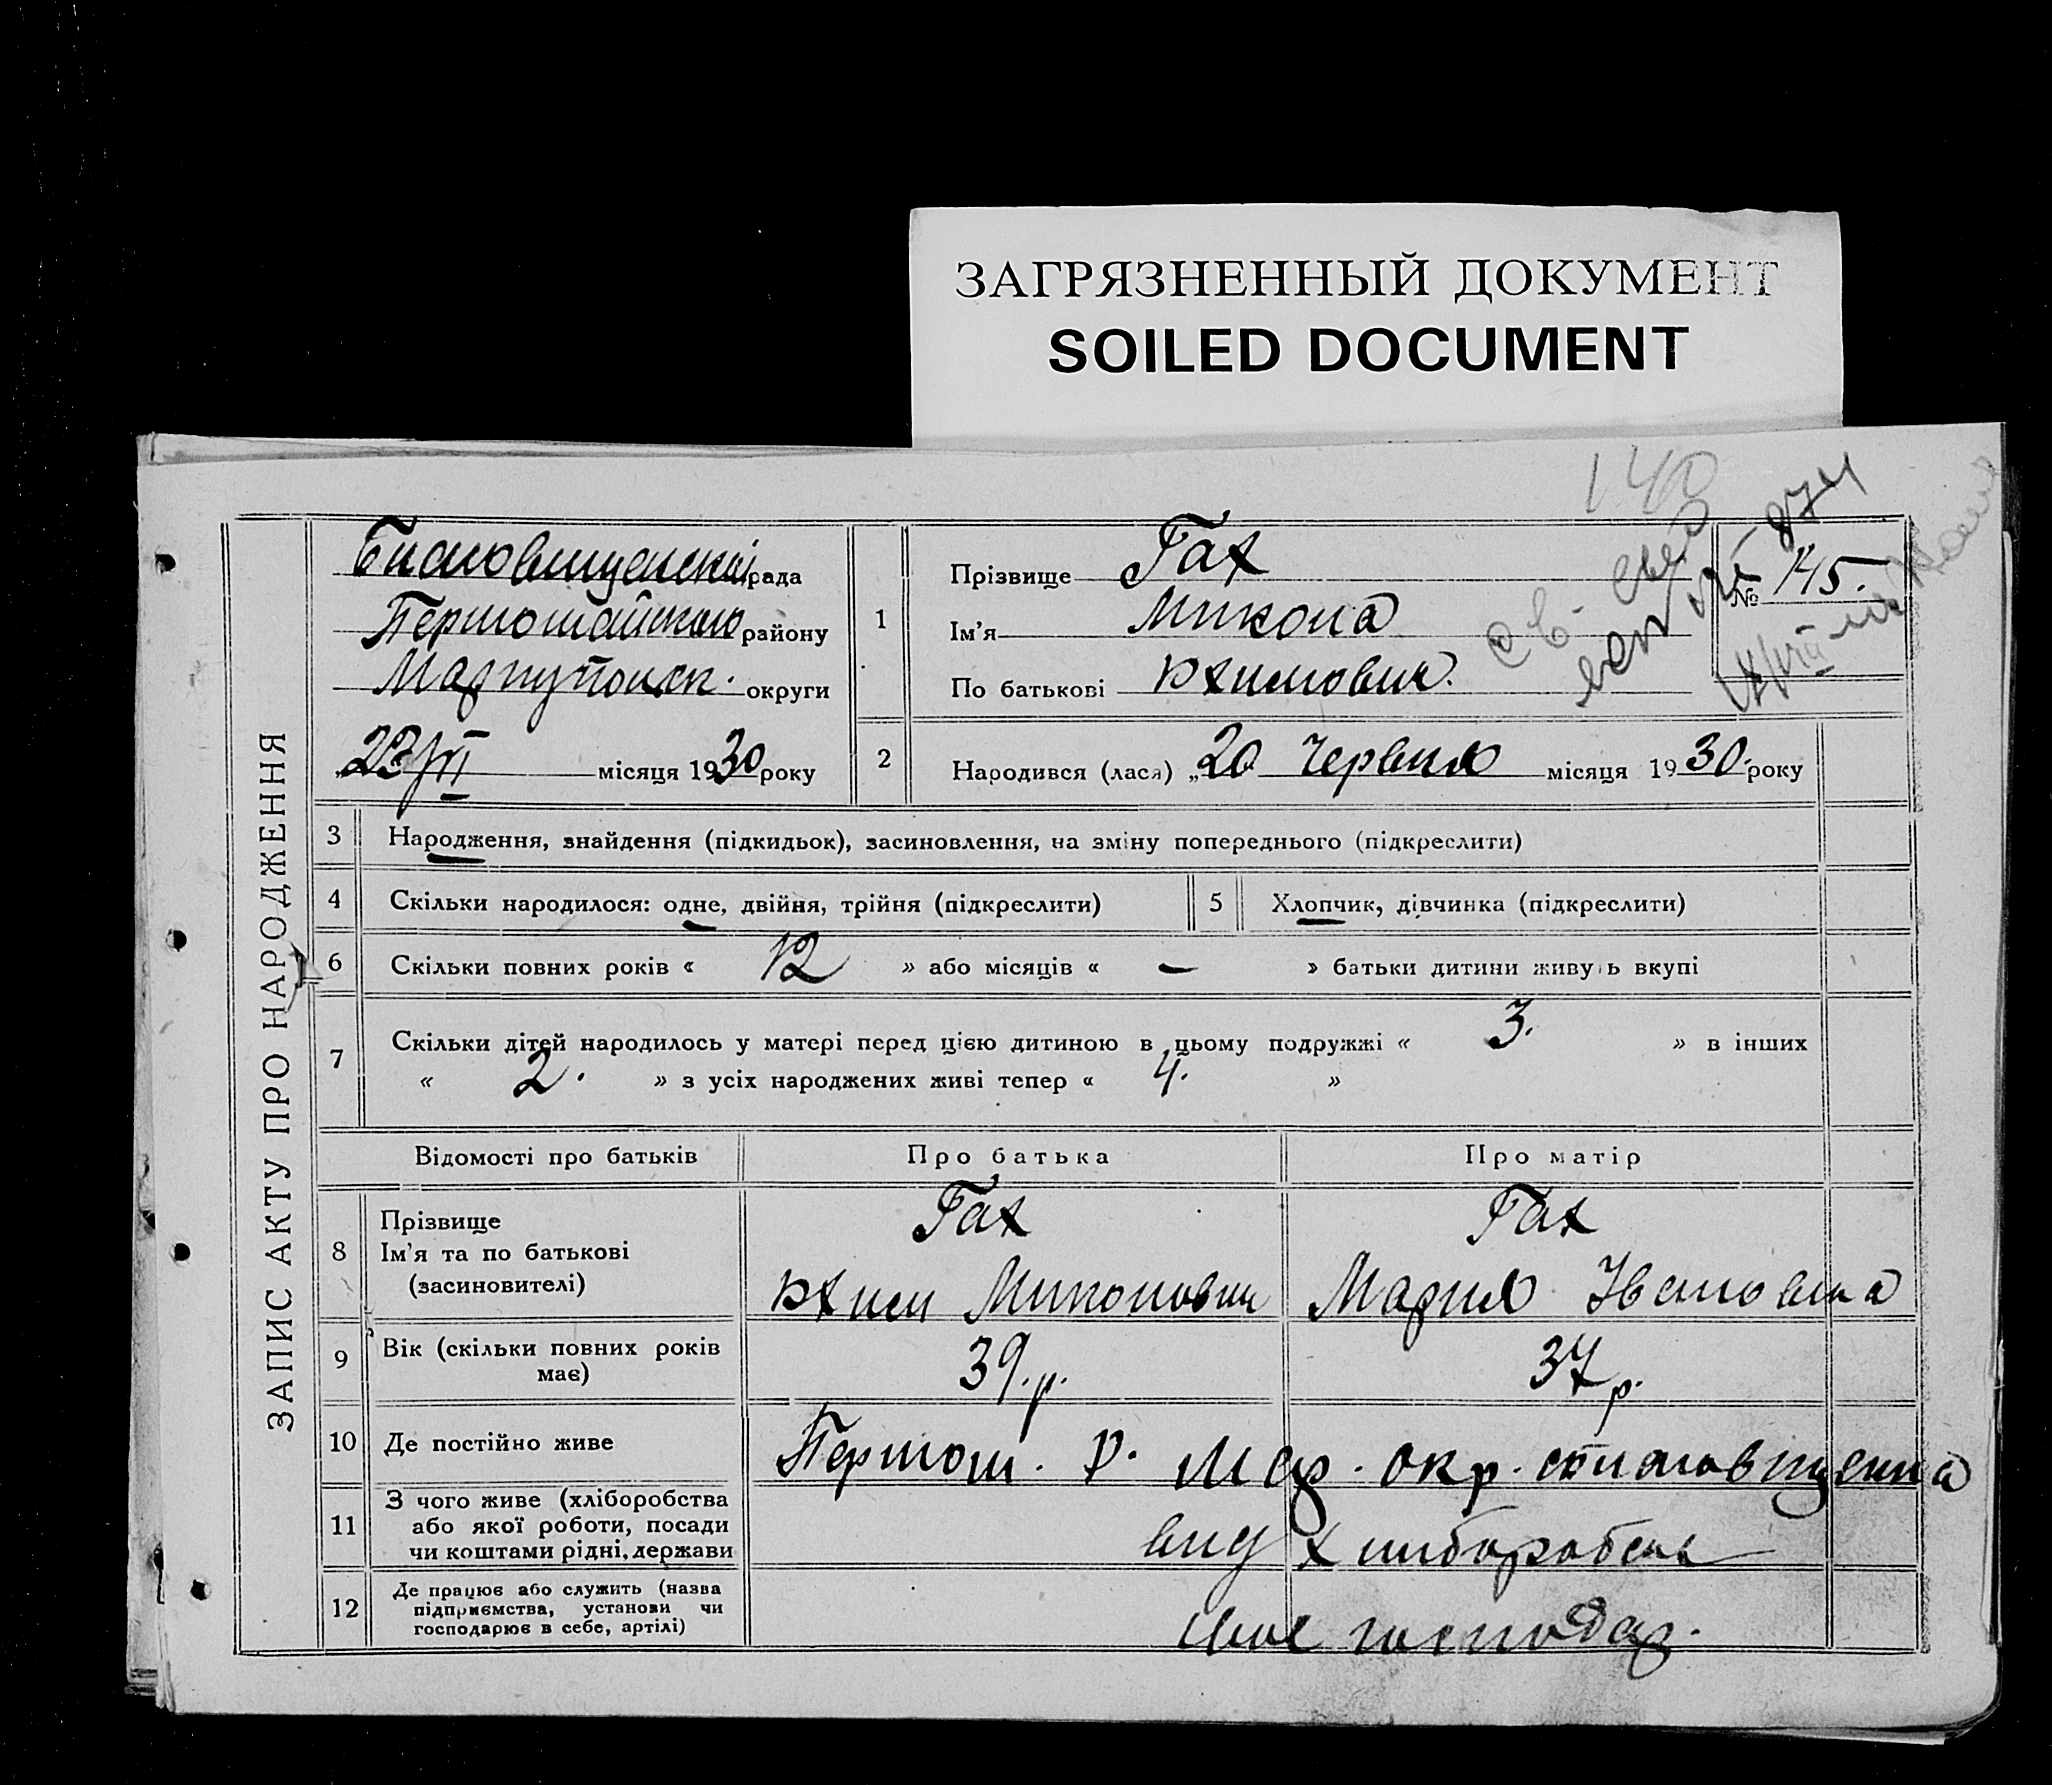 ЗАГРЯЗНЕННЫЙ ДОКУМЕНТ
SOILED DOCUMENT
140
ЗАПИС АКТУ ПРО НАРОДЖЕННЯ
рада
району
Маріупольск. округи
„23/VI місяця 1930 року
1
Прізвище Гах
Ім'я Микола
По батькові Юхимович.
№ 145.
2
Народився (лася) „20 Червня місяця 1930 року
3 Народження, знайдення (підкидьок), засиновлення, на зміну попереднього (підкреслити)
4 Скільки народилося: одне, двійня, трійня (підкреслити)
5 Хлопчик, дівчинка (підкреслити)
6 Скільки повних років « 12 » або місяців « – » батьки дитини живуть вкупі
7 Скільки дітей народилось у матері перед цією дитиною в цьому подружжі « 3. » в інших
« 2. » з усіх народжених живі тепер « 4. »
Відомості про батьків Про батька Про матір
8 Прізвище
Ім'я та по батькові
(засиновителі)
Гах
Юхим Миколович
Гах
Мария Ивановна
9 Вік (скільки повних років
має)
39. р.
37 р.
10 Де постійно живе
р. Мар. окр.
11 З чого живе (хліборобства
або якої роботи, посади
чи коштами рідні, держави
від хліборобства
12 Де працює або служить (назва
підприємства, установи чи
господарює в себе, артілі)
своє господар.